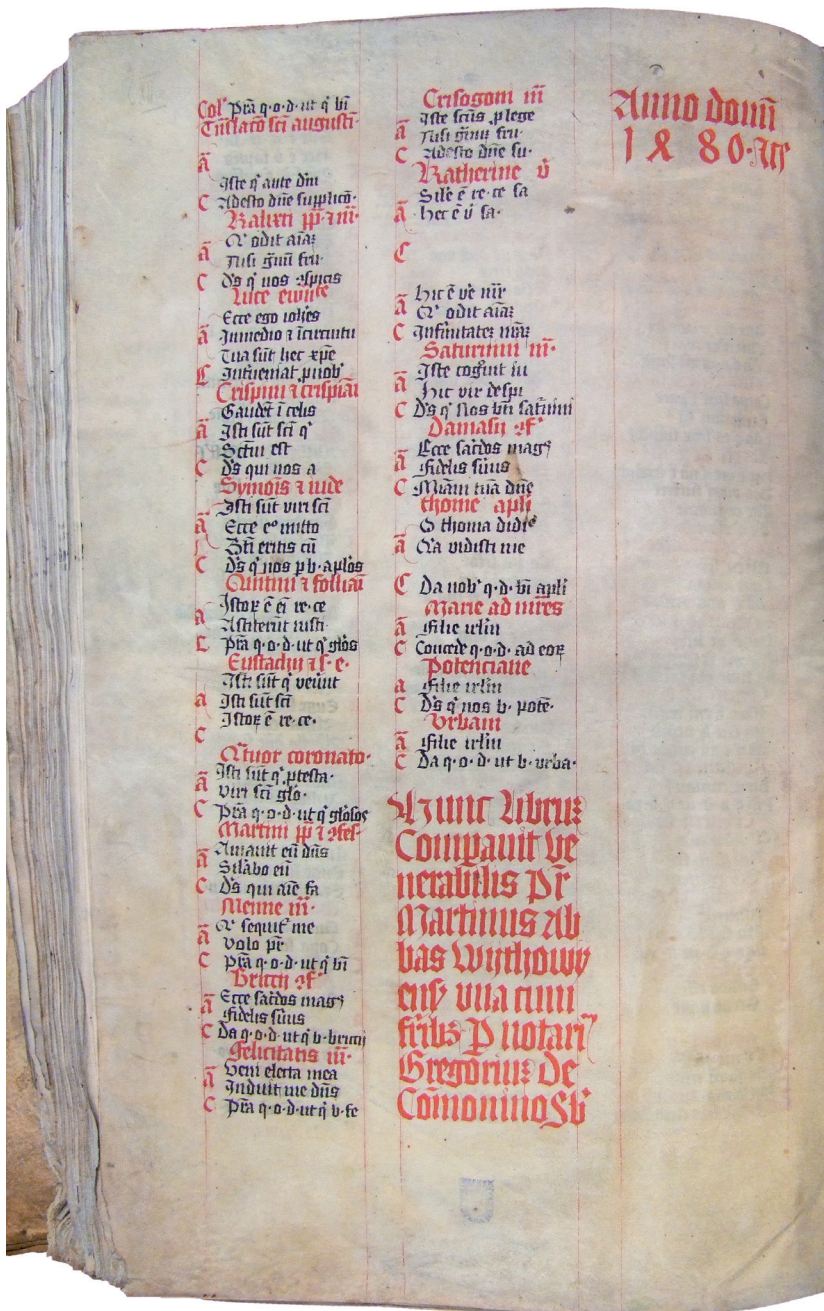 Col' Pra q·o·d·ut q̇ bi
Tnslaco sci augusti·
a
Iste q̇ ante dni
C Adesto dne supplico·
Kalixti pp̄ ⁊ m̄·
a Q' odit aīaꝫ
Nisi g̃nū fru·
C Ds q̇ nos ꝯspicis
Luce ewn͡te
Ecce ego ioh̄es
a Inmedio ⁊ ī circuitu
Tua sūt hec xp̄e
C Int'ueniat ꝓ nob'
Crispini ⁊ crispiāi
Gaudēt ī celis
a Isti sūt sc̄i q'
Sc̄tui est
C Ds qui nos a
Symois ⁊ iude
Isti sūt viri sc̄i
a Ecce e° mitto
Bt̄i eritis cū
C Ds q̇ nos p b· apl̄os
Quintini ⁊ follian̄
Istoꝝ ē ei re·ce
a Astiterūt iusti·
C Pr̄a q·o·d·ut q' gl̄os
Eustachii ⁊ s· e·
Isti sūt q' venūt
a Isti sūt sc̄i
Istoꝝ ē re·ce·
C
Q̄tuor coronato·
Isti sūt q' ptesta·
a Viri sc̄i gl̄o·
C Pr̄a q·o·d·ut q' gl̄osos
Martini pp̄ ⁊ ꝯfes·
Amauit eū dn̄s
a Sil̄abo eū
C Ds qui aīe fa
Menne m̄·
Q' sequit' me
a Volo pr̄
C Pr̄a q·o·d·ut q̇ bi
Briccii ꝯf'
Ecce sac̄dos magꝫ
a fidelis s̄uus
C Da q·o·d·ut q̇ b·briccij
Felicitatis m̄·
Veni electa mea
a Induit me dn̄s
C Pr̄a q·o·d·ut q̇ b·fe
Crisogoni m̄
Iste sc̄us ꝓ lege
a Nisi g̃nū fru·
C Adesto dn̄e su·
Katherine v̄
Sil̄e ē re·ce sa
a Hec ē v̄ sa·
C
Hic ē ve mr̄
a Q' odit aīaꝫ
C Infirmitateꝫ nr̄aꝫ
Saturnini m̄·
Iste cog̃uit iu
a Hic vir despi
C Ds q' Nos bt̄i sat'nini
Damasij ꝯf'
Ecce sac̄dos magꝫ
a fidelis s̄uus
C Mīam tuā dn̄e
thome apl̄i
O thoma didi°
a Q'a vidisti me
C Da nob' q·d·bi apl̄i
Marie ad m̄res
a filie irl̄m
C Concede q·o·d·ad eoꝝ
Potenciane
a filie irl̄m
C Ds q' nos b· potē·
Vrbani
a filie irl̄m
C Da q·o·d·ut b·vrba·
Hunc libruꝫ
Compauit ve
nerabilis Pr̄
Martinus Ab
bas Wythowy
ensꝭ vna cum
fr̄ibꝫ P notari
Gregoriuꝫ De
Com̄onino Sb'
Anno domī
1 4 8 0·